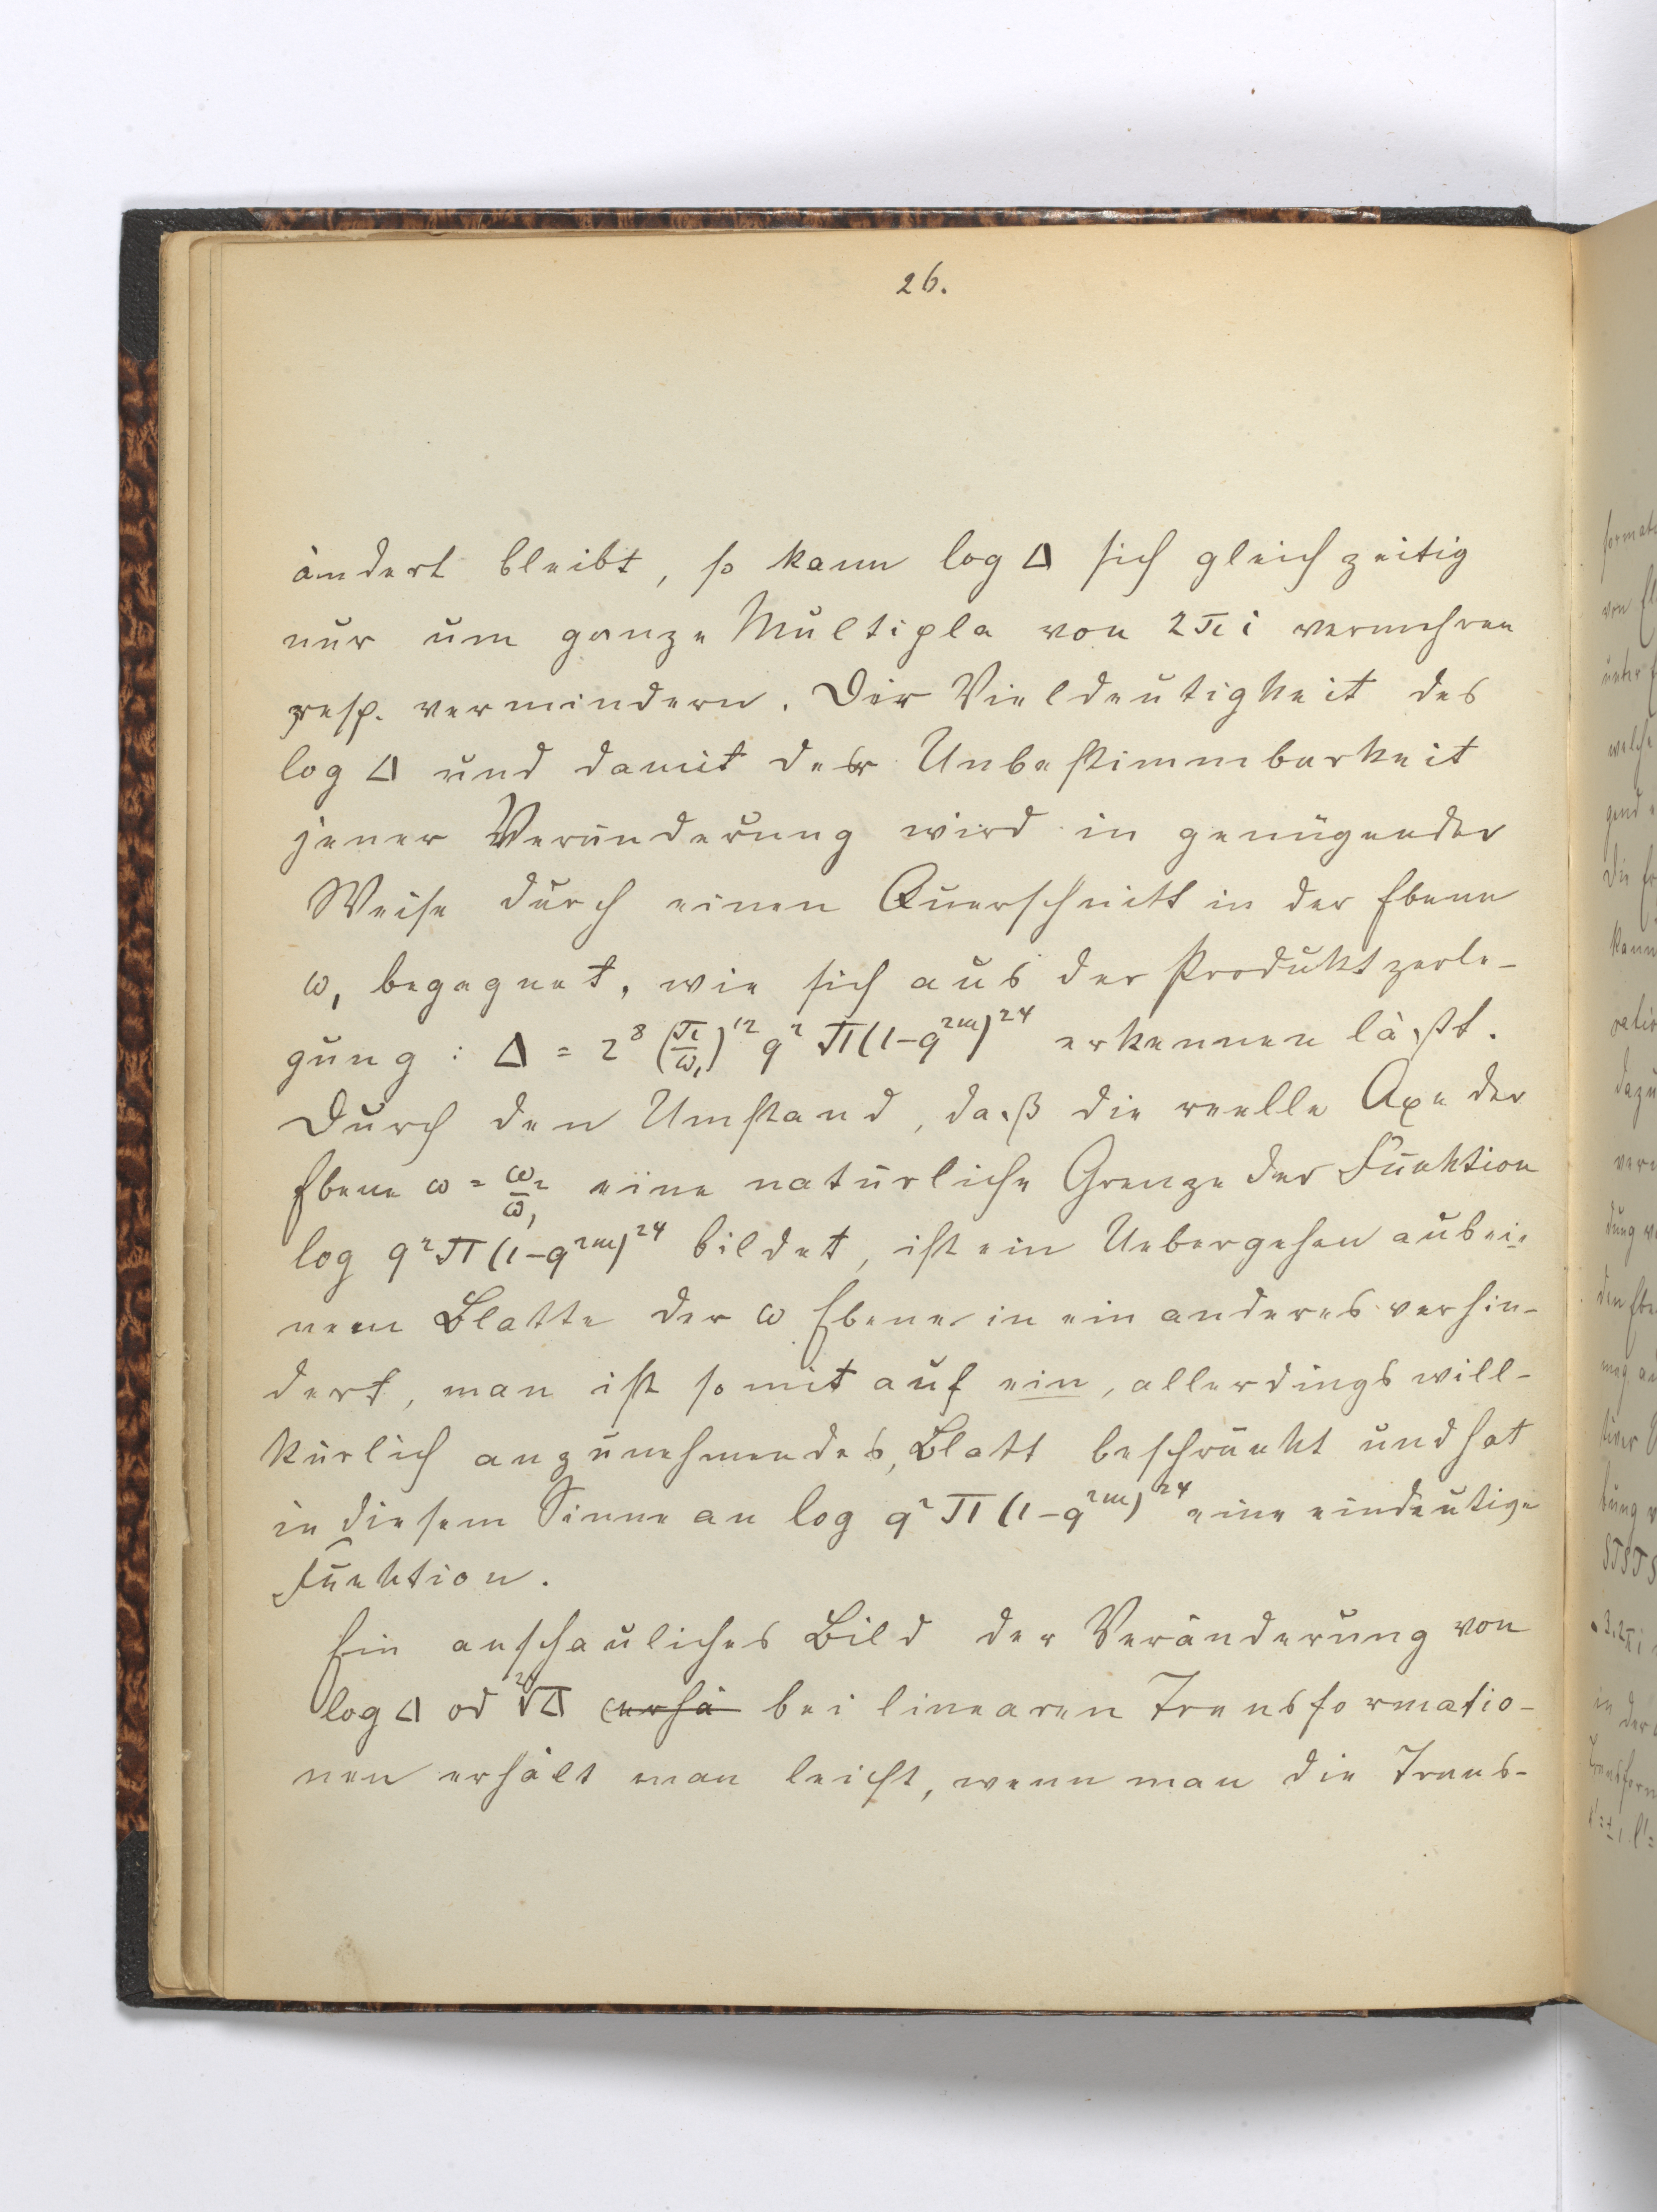 26.
ändert bleibt, so kann log Δ sich gleichzeitig
nur um ganze Multipla von 2πi vermehren
resp. vermindern. Der Vieldeutigkeit des
log Δ und damit der Unbestimmbarkeit
jener Veränderung wird in genügender
Weise durch einen Querschnitt in der Ebene
ω₁ begegnet, wie sich aus der Produktzerle-
gung: Δ = 2⁸ (π/ω₁)¹² q² Π(1-q²ᵐ)²⁴ erkennen läßt.
Durch den Umstand, daß die reelle Axe der
Ebene ω = ω₂/ω₁ eine natürliche Grenze der Funktion
log q² Π(1-q²ᵐ)²⁴ bildet, ist ein Uebergehen aus ei-
nem Blatte der ω Ebene in ein anderes verhin-
dert, man ist somit auf ein, allerdings will-
kürlich anzunehmendes, Blatt beschränkt und hat
in diesem Sinne an log q² Π(1-q²ᵐ)²⁴ eine eindeutige
Funktion.
Ein anschauliches Bild der Veränderung von
log Δ od ²⁴√Δ erhä bei linearen Transformatio-
nen erhält man leicht, wenn man die Trans-